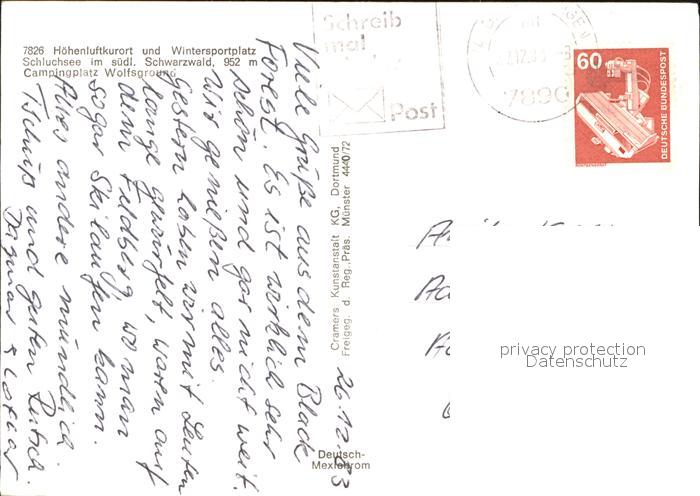 7826 Höhenluftkurort und Wintersportplatz
Schluchsee im südl. Schwarzwald, 952 m
Campingplatz Wolfsgrund
Schreib
mal
Post
7890
60
DEUTSCHE BUNDESPOST
26.12.83
Viele Grüße aus dem Black
Forest. Es ist wirklich sehr
schön und gar nicht weit.
Wir genießen alles.
Gestern haben wir mit Leuten
lange gewürfelt, waren auf
dem Feldberg, wo man
sogar Skilaufen kann.
Alles andere mündlich.
Tschüß und guten Rutsch.
Dagmar &
Cramers Kunstanstalt KG, Dortmund
Freigeg. d. Reg.Präs. Münster 4440/72
privacy protection
Datenschutz